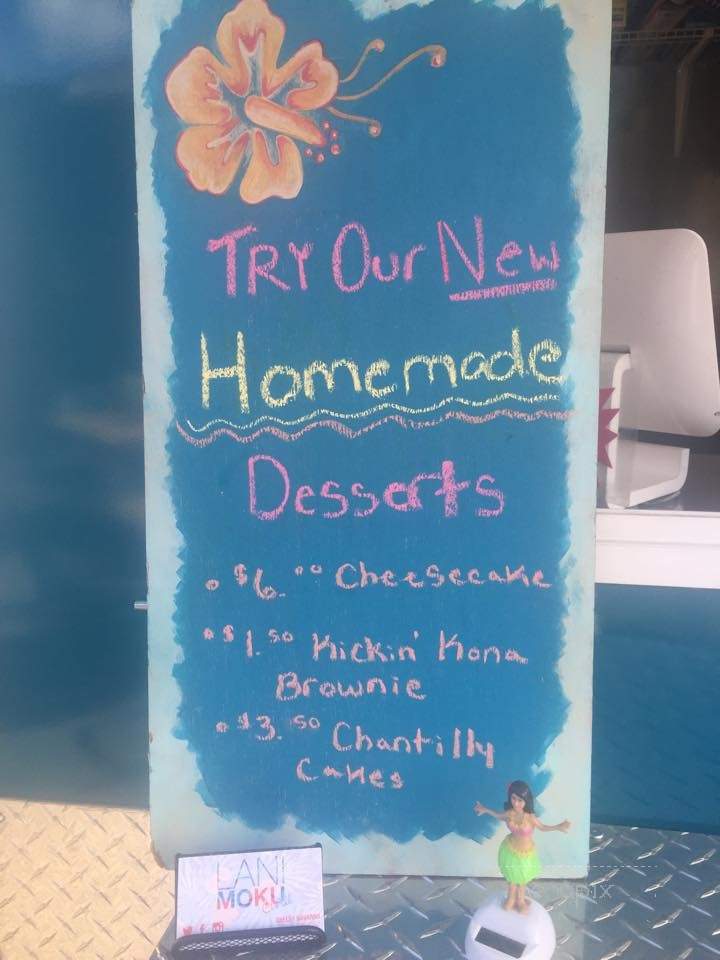 TRY Our New
Homemade
Desserts
• $6.00 Cheesecake
• $1.50 Kickin' Kona
Brownie
• $3.50 Chantilly
Cakes
LANI
MOKU